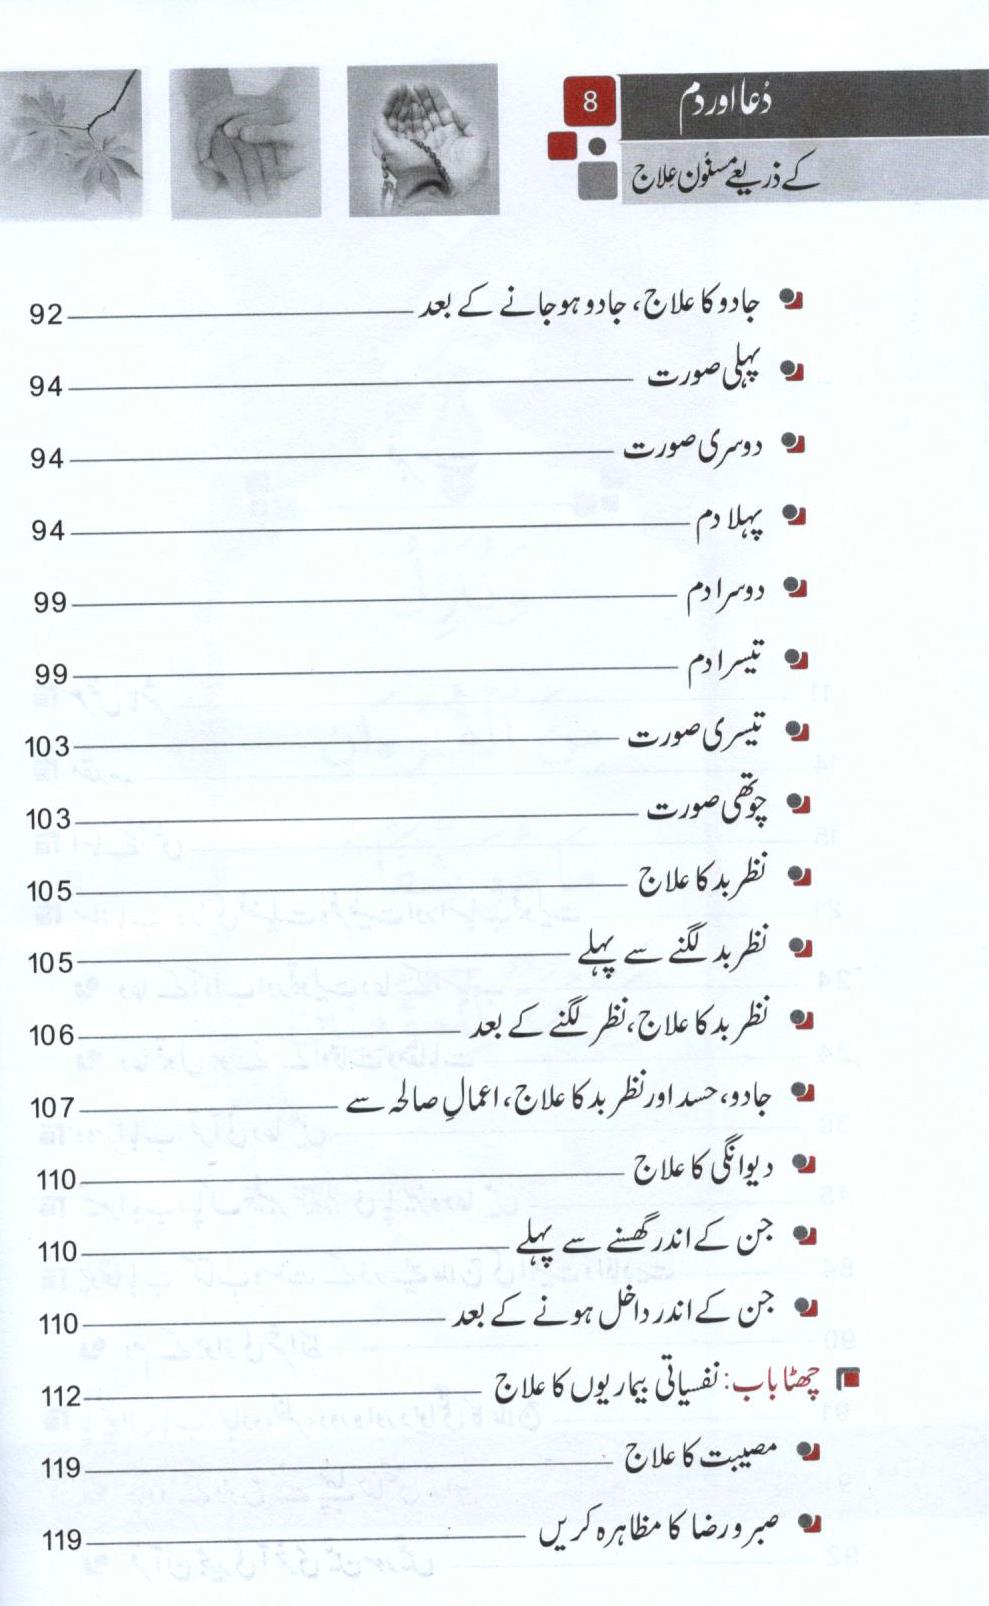 دُعا اور دَم
8
کے ذریعے مسنُون عِلاج
جادو کا علاج، جادو ہو جانے کے بعد 92
پہلی صورت 94
دوسری صورت 94
پہلا دم 94
دوسرا دم 99
تیسرا دم 99
تیسری صورت 103
چوتھی صورت 103
نظر بد کا علاج 105
نظر بد لگنے سے پہلے 105
نظر بد کا علاج، نظر لگنے کے بعد 106
جادو، حسد اور نظر بد کا علاج، اعمالِ صالحہ سے 107
دیوانگی کا علاج 110
جن کے اندر گھسنے سے پہلے 110
جن کے اندر داخل ہونے کے بعد 110
چھٹا باب: نفسیاتی بیماریوں کا علاج 112
مصیبت کا علاج 119
صبر و رضا کا مظاہرہ کریں 119